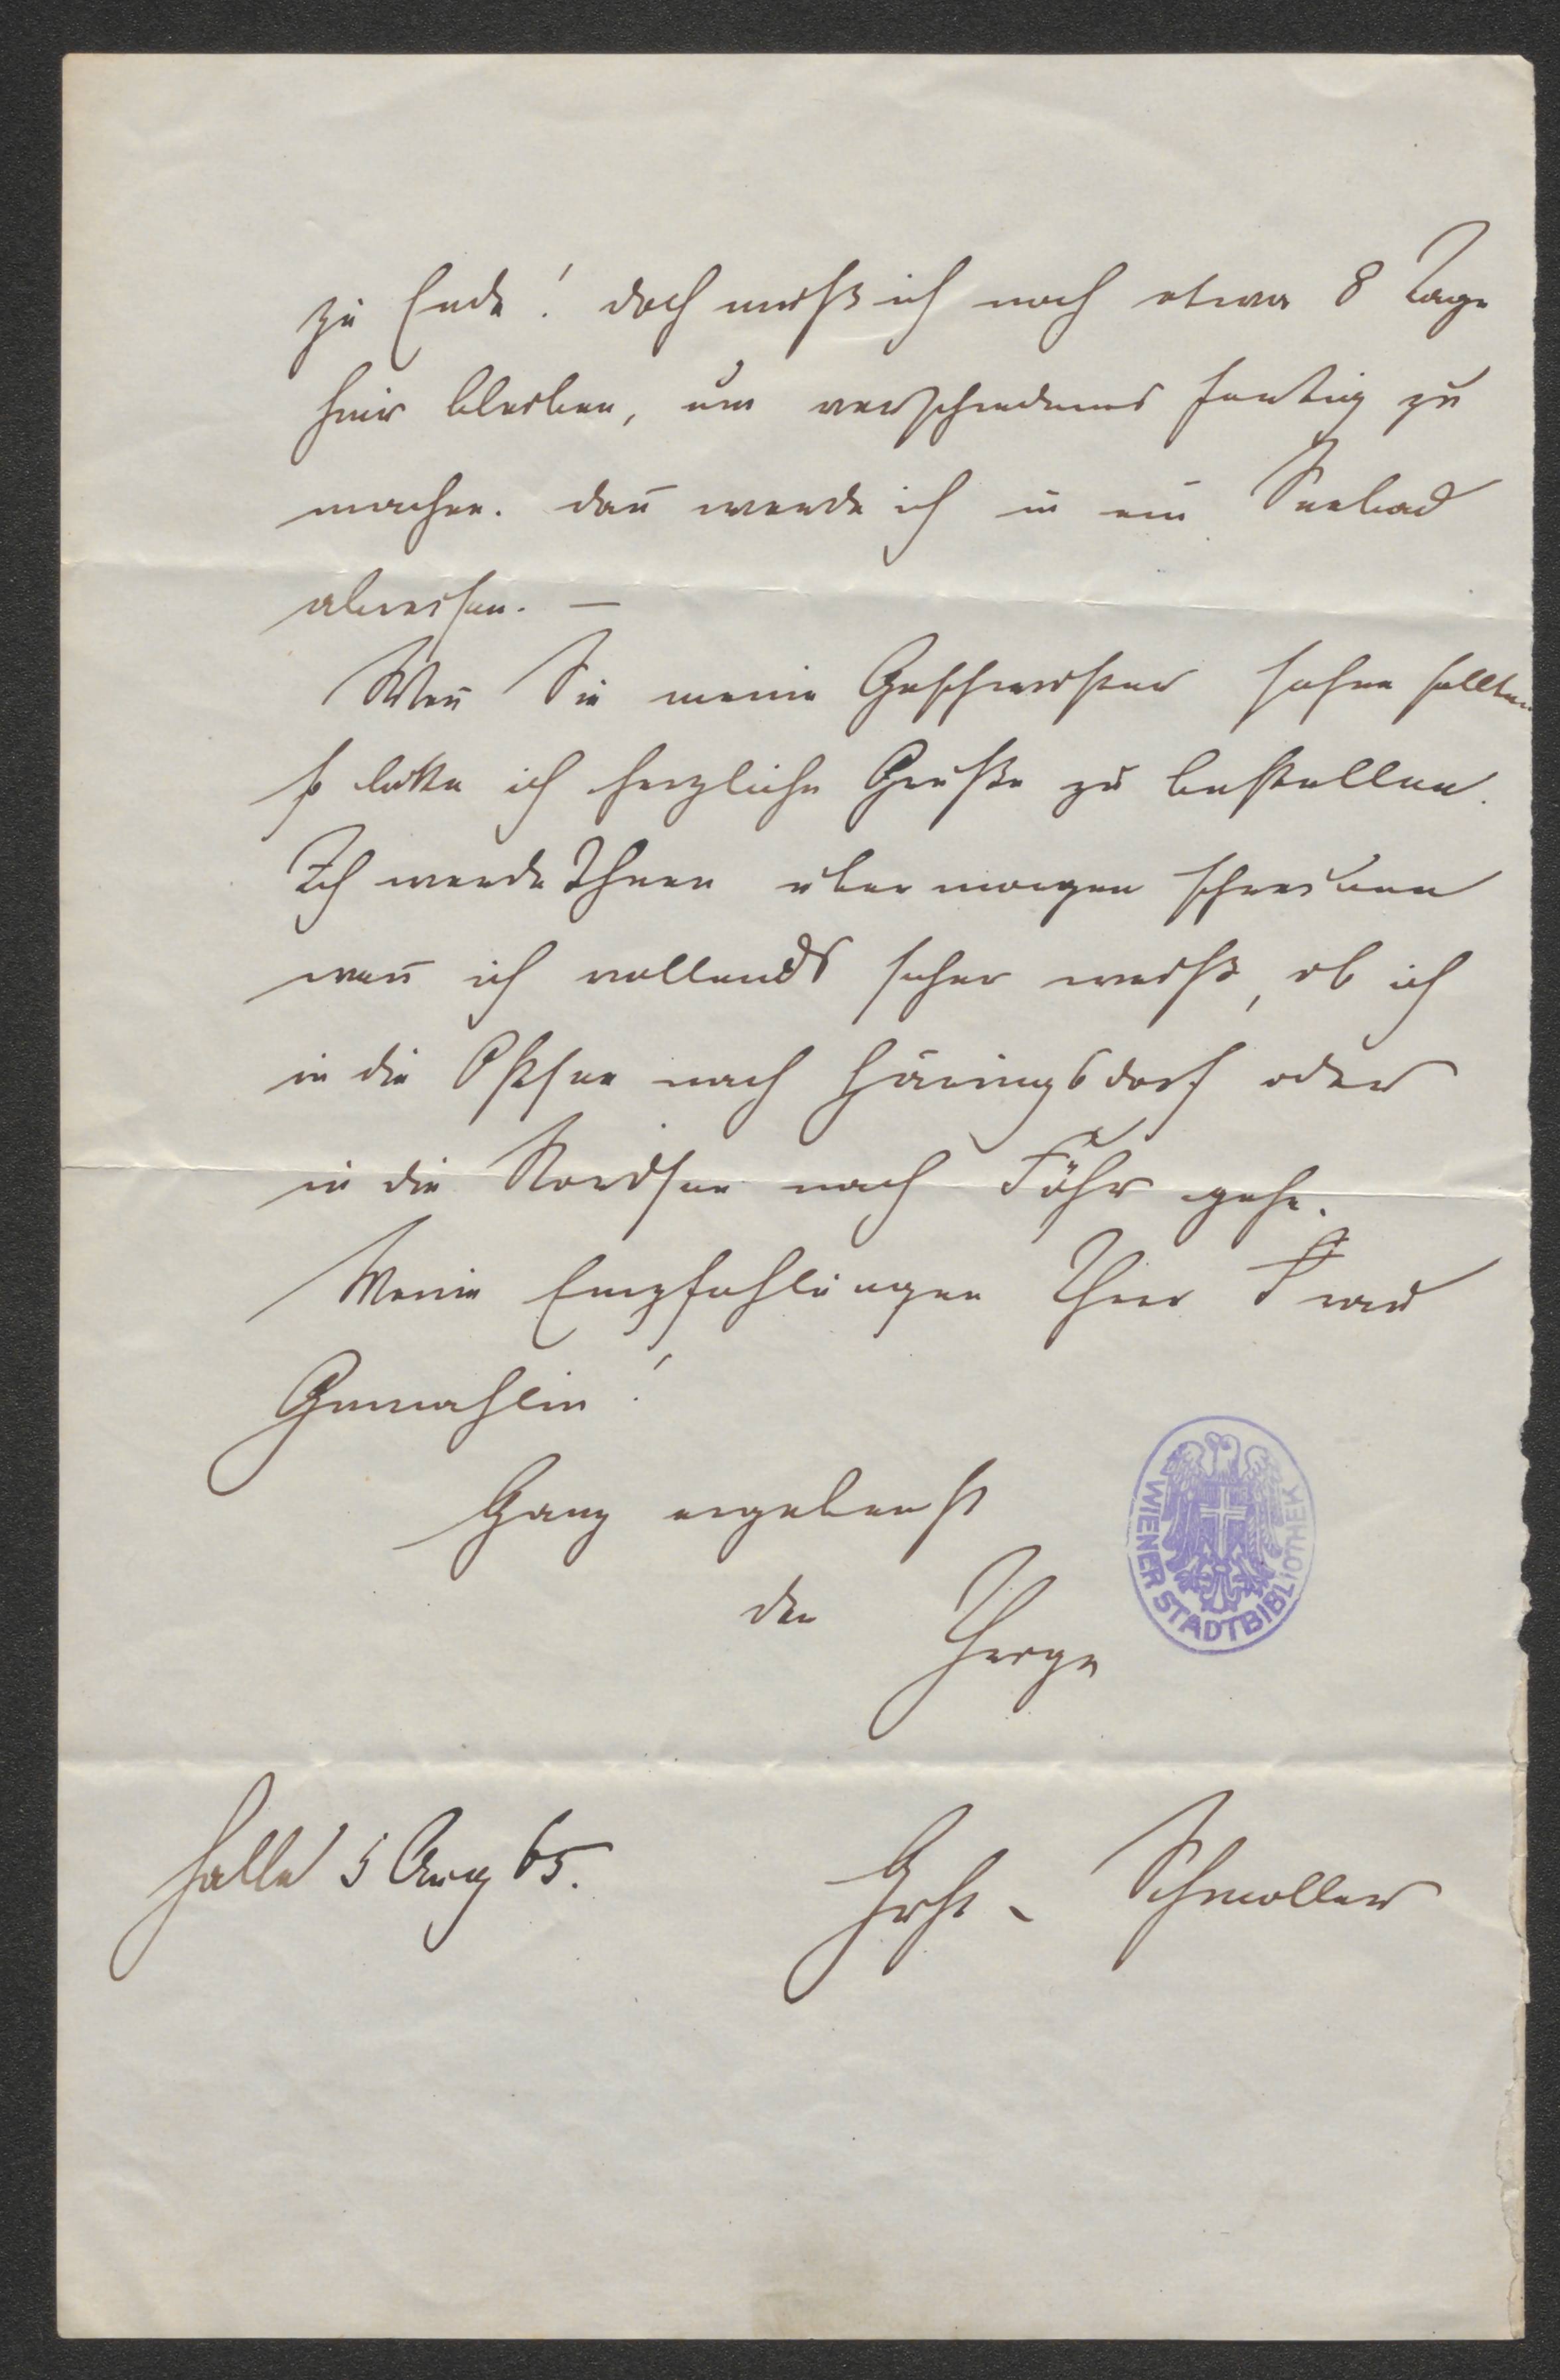 zu Ende! doch muß ich noch etwa 8 Tage
hier bleiben, um verschiedenes fertig zu
machen. dan̅ werde ich in ein Seebad
abreisen. —
Wen̅ Sie meine Geschwister sehen sollten
so bitte ich herzliche Grüße zu bestellen.
Ich werde Ihnen übermorgen schreiben
wen̅ ich vollends sicher weiß, ob ich
in die Ostsee nach Häringsdorf oder
in die Nordsee nach Föhr gehe.
Meine Empfehlungen Ihrer Frau
Gemahlin!
Ganz ergebenst
der Ihrige
WIENER STADTBIBLIOTHEK
Halle 5 Aug 65.
Gust. Schmoller